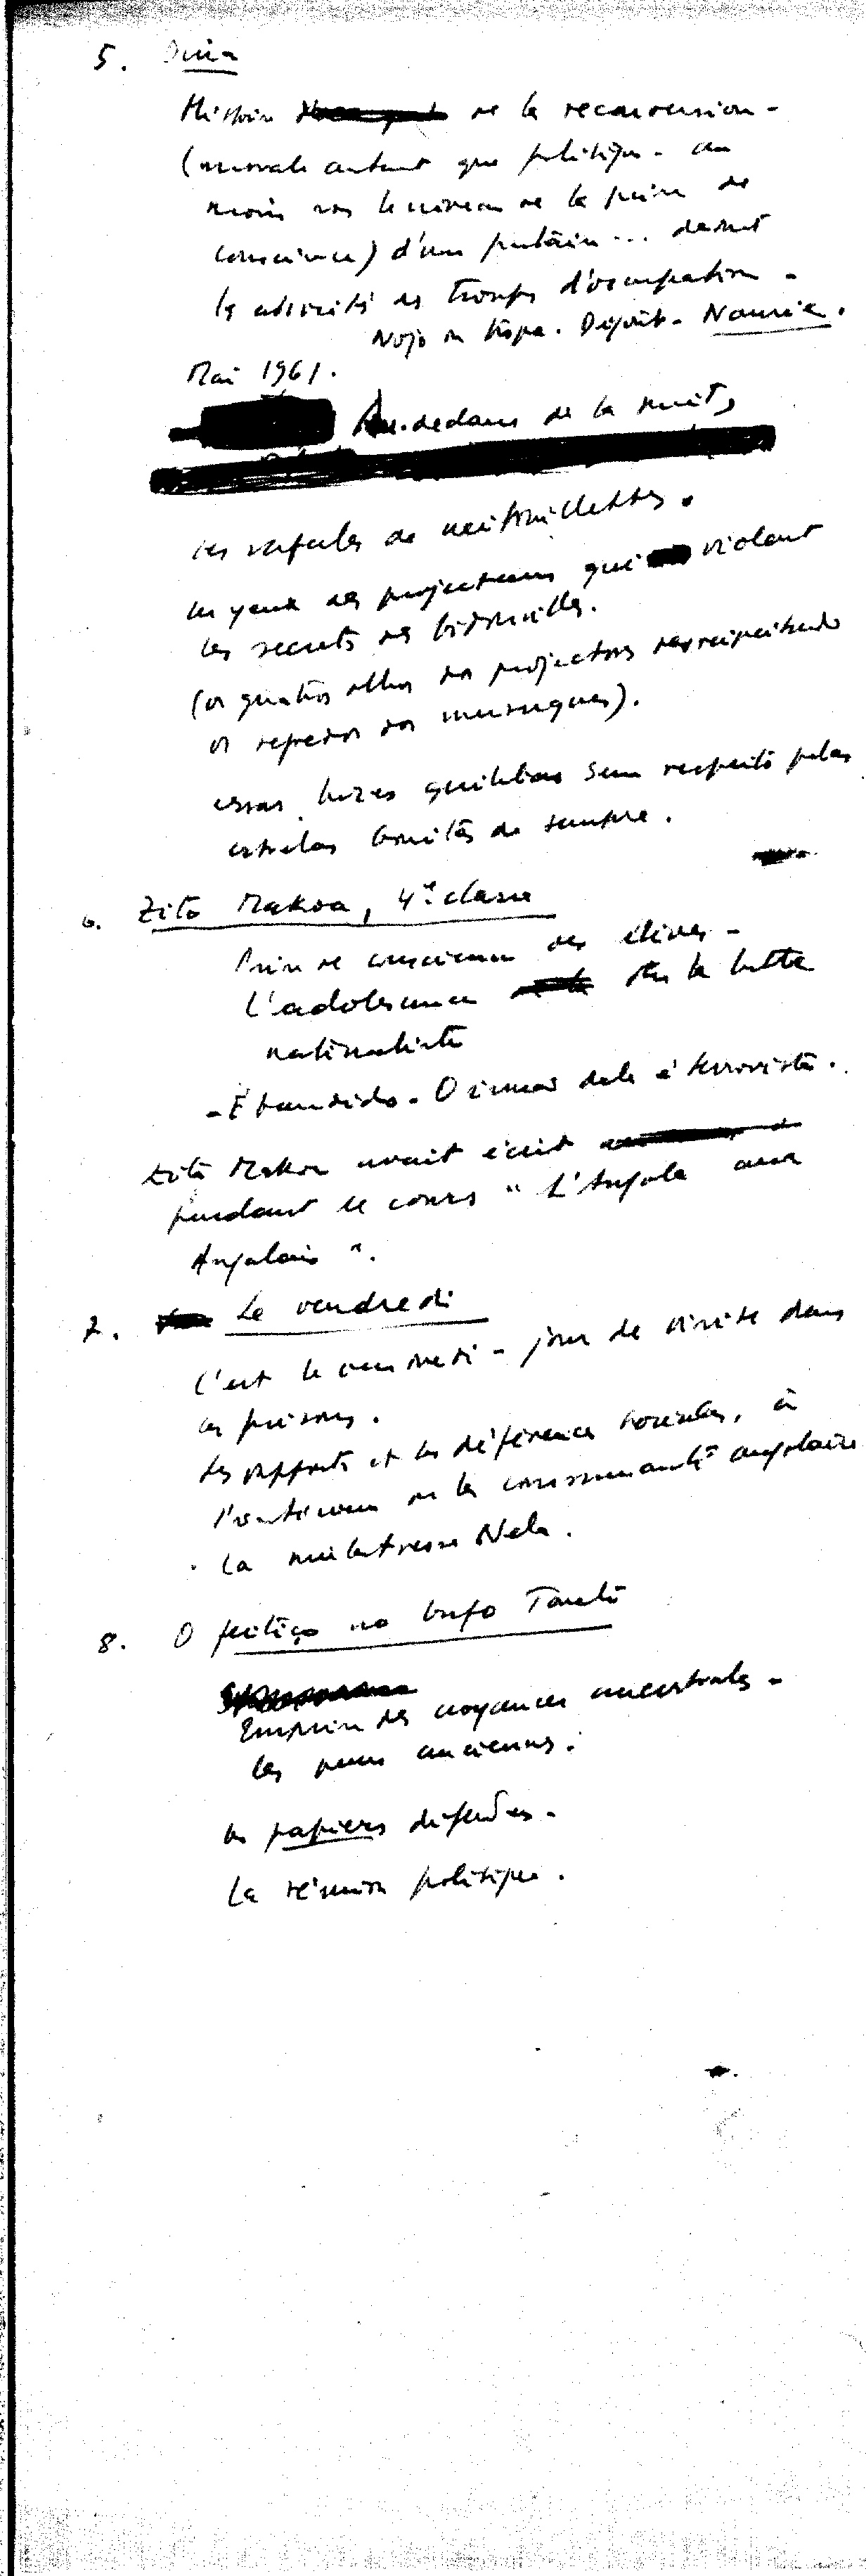 5. Dina
Histoire de la reconversion -
(morale autant que politique - au
moins sous le niveau de la prise de
conscience) d'une putain... devant
les atrocités des troupes d'occupation -
Nojo da tropa. Dégoût - Nausée.
Mai 1961.
Au-dedans de la nuit,
les rafales de mitraillettes.
les yeux des projecteurs qui violent
les secrets des bidonvilles.
(os quatros olhos dos projectores
os segredos dos musseques).
essas luzes sem respeito pelas
estrelas bonitas de sempre.
6. Zito Makoa, 4ª classe
Prise de conscience des élèves -
L'adolescence la lutte
nationaliste
- É bandido - O irmão dele é terrorista.
Zito Makoa avait écrit
pendant le cours " L'Angola aux
Angolais ".
7. Le vendredi
C'est le vendredi - jour de visite dans
les prisons.
Les rapports et les différences sociales, à
l'intérieur de la communauté angolaise
. La mulâtresse Nela.
8. O feitiço no bufo Toneto
Emprise des croyances ancestrales -
les peurs anciennes.
les papiers défendus -
La réunion politique.